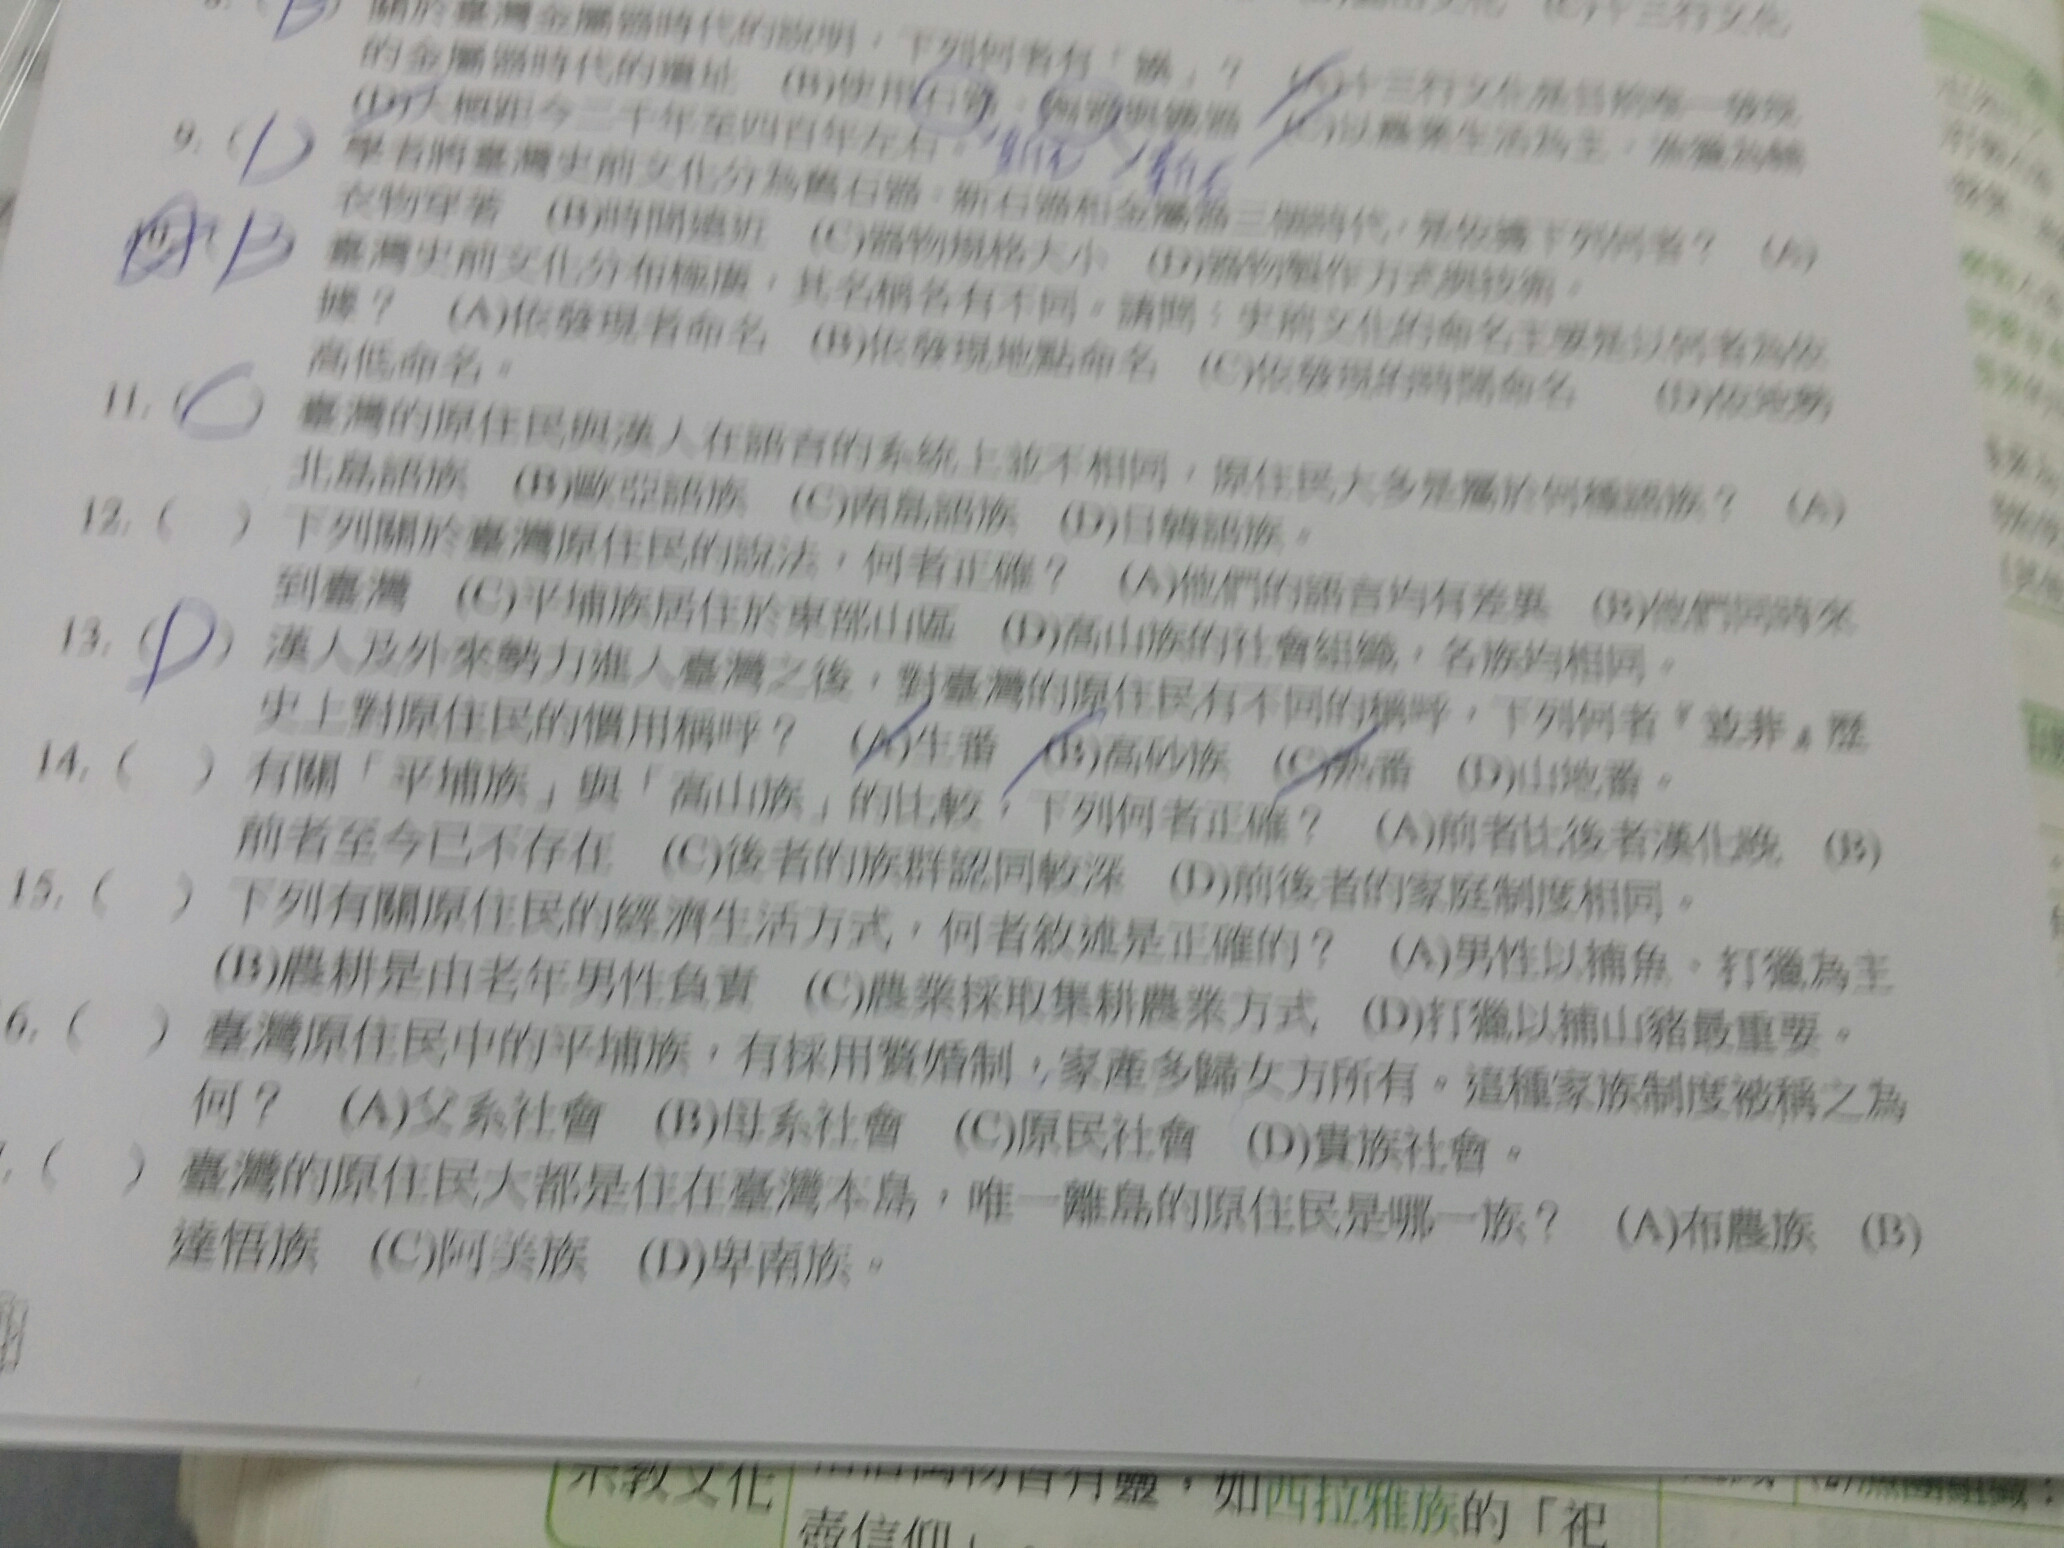 關於臺灣金屬器時代的說明，下列何者有「誤」？ (A)十三行文化是目前唯一發現
的金屬器時代的遺址 (B)使用石器、陶器與鐵器 (C)以農業生活為主，漁獵為輔
(D)大概距今二千年至四百年左右。
9. (D) 學者將臺灣史前文化分為舊石器、新石器和金屬器三個時代，是依據下列何者？ (A)
衣物穿著 (B)時間遠近 (C)器物規格大小 (D)器物製作方式與技術。
10. (B) 臺灣史前文化分布極廣，其名稱各有不同。請問：史前文化的命名主要是以何者為依
據？ (A)依發現者命名 (B)依發現地點命名 (C)依發現的時間命名 (D)依地勢
高低命名。
11. (C) 臺灣的原住民與漢人在語言的系統上並不相同，原住民大多是屬於何種語族？ (A)
北島語族 (B)歐亞語族 (C)南島語族 (D)日韓語族。
12. ( ) 下列關於臺灣原住民的說法，何者正確？ (A)他們的語言均有差異 (B)他們同時來
到臺灣 (C)平埔族居住於東部山區 (D)高山族的社會組織，各族均相同。
13. (D) 漢人及外來勢力進入臺灣之後，對臺灣的原住民有不同的稱呼，下列何者『並非』歷
史上對原住民的慣用稱呼？ (A)生番 (B)高砂族 (C)熟番 (D)山地番。
14. ( ) 有關「平埔族」與「高山族」的比較，下列何者正確？ (A)前者比後者漢化晚 (B)
前者至今已不存在 (C)後者的族群認同較深 (D)前後者的家庭制度相同。
15. ( ) 下列有關原住民的經濟生活方式，何者敘述是正確的？ (A)男性以捕魚、打獵為主
(B)農耕是由老年男性負責 (C)農業採取集耕農業方式 (D)打獵以捕山豬最重要。
6. ( ) 臺灣原住民中的平埔族，有採用贅婚制，家產多歸女方所有。這種家族制度被稱之為
何？ (A)父系社會 (B)母系社會 (C)原民社會 (D)貴族社會。
( ) 臺灣的原住民大都是住在臺灣本島，唯一離島的原住民是哪一族？ (A)布農族 (B)
達悟族 (C)阿美族 (D)卑南族。
宗教文化
萬物皆有靈，如西拉雅族的「祀
壺信仰」。